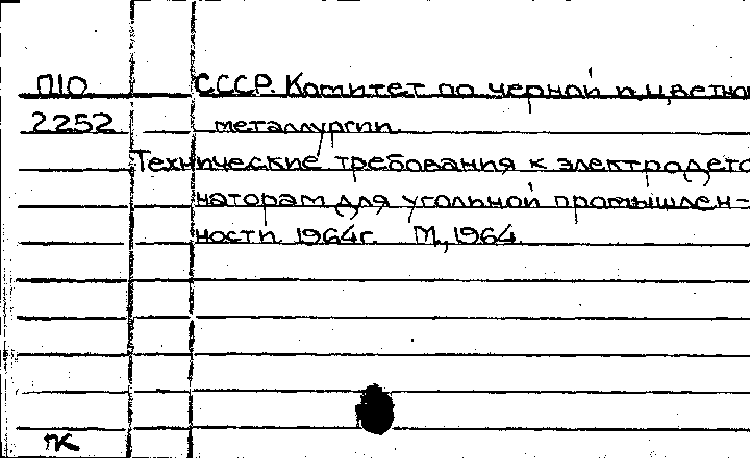 П10 СССР. Комитет по черной и цветно
2252 металлургии.
Технические требования к электродето
наторам для угольной промышлен-
ности 1964г. М., 1964.
ПК